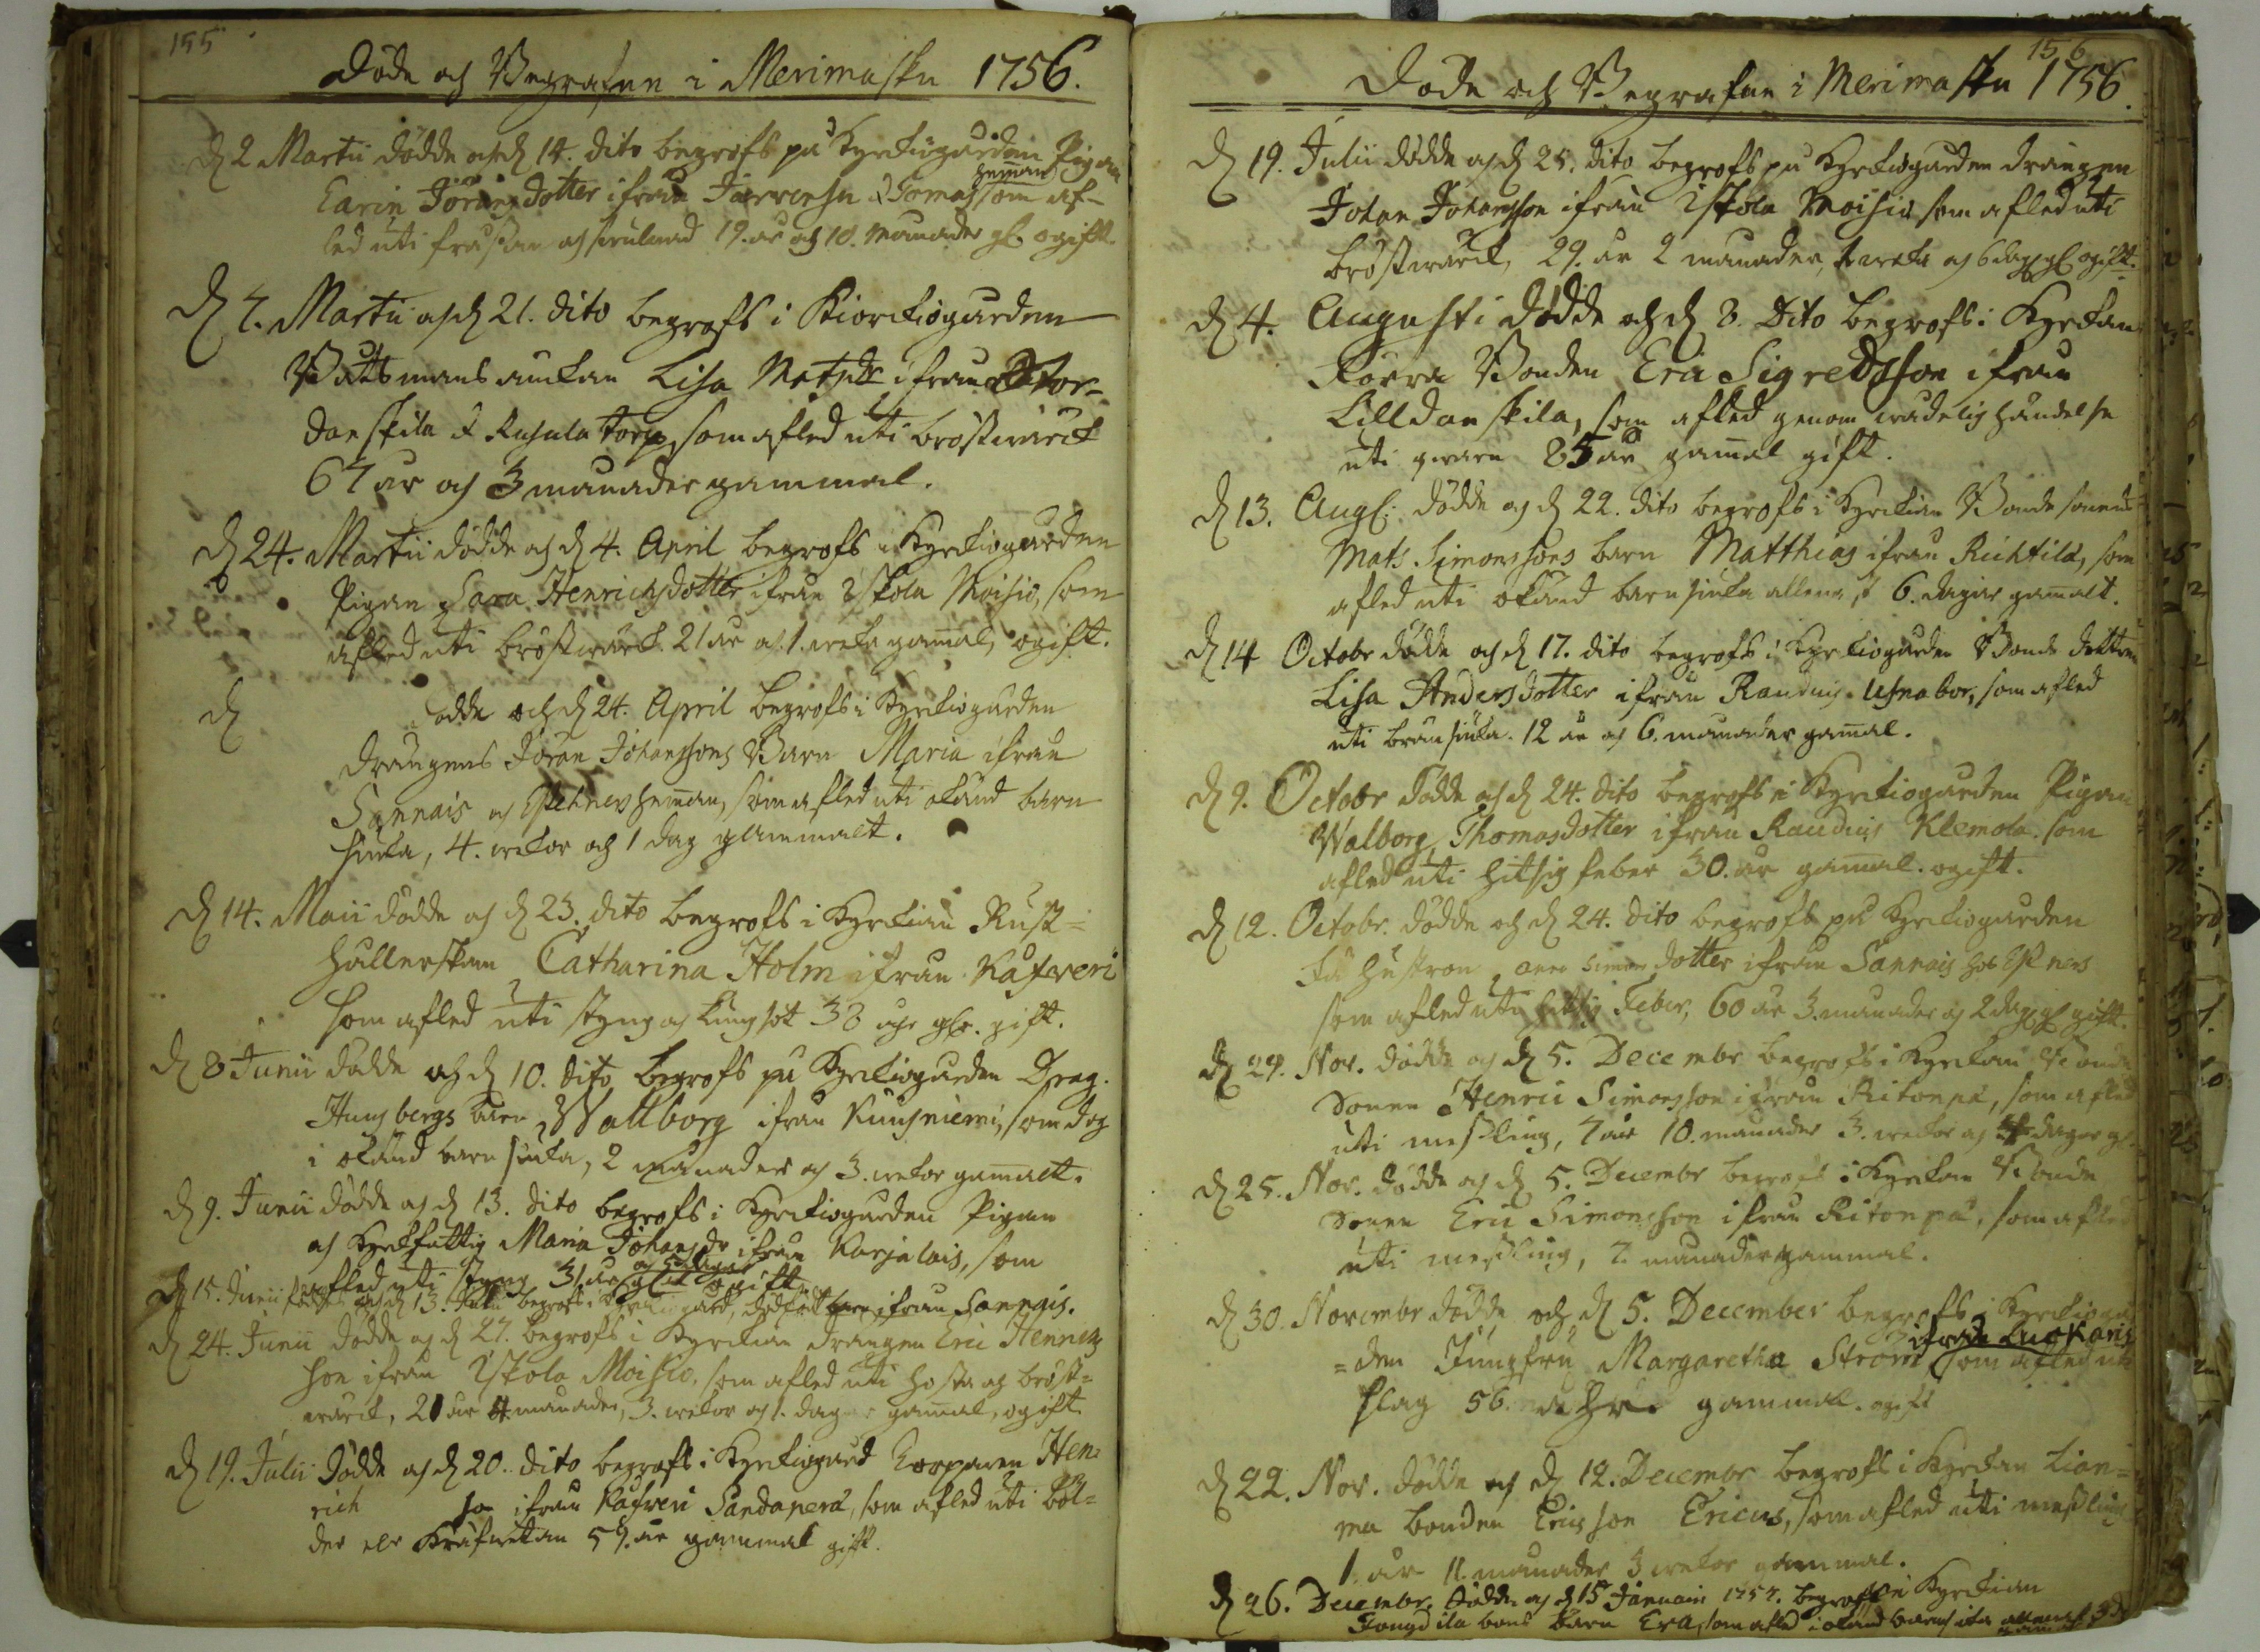 155
Döde och Begrafne i Merimasku 1756.
D 2 Martii dödde och d 14. dito begrofs på Kyrkiogården Pigan
Carin Jöransdotter ifrån Tomas heman som af-
led uti frossan och 19. år och 10. månader gl. ogift.
D 7. Martii och d 21. dito begrofs i Kiörckiogården
Båtsmans änckan Lisa Matsdr ifrån Stor-
danskila torp, som afled uti bröstwärck
67 år och 3 månader gammal.
D 24. Martii dödde och d 4. April begrofs i Kyrkiogården
Pigan Sara Henrichsdotter ifrån Iskola Moisio, som
afled uti bröstwärck. 21 år och 1. weka gamal, ogift.
D
dödde och d 24. April begrofs i Kyrkiogården
drängens Jöran Johanssons Barn Maria ifrån
Sannais och heman, som afled uti okänd barn
siuka, 4. wekor och 1 dag gammalt.
D 14. Maii dödde och d 23. dito begrofs i Kyrkian Rust-
hållerskan Catharina Holm ifrån Kafweri
som afled uti styng och lungsot 38 åhr glr. gift.
D 8 Junii dödde och d 10. dito begrofs på Kyrkiogården Drag.
Hunsbergs barn Wallborg ifrån Kuusniemi, som dog
i okänd barn siuka, 2 månader och 3. wekor gamalt.
D 9. Junii dödde och d 13. dito begrofs i Kyrkiogården Pigan
och Kyrkfattig Maria Johansdr ifrån Karjalais, som
afled uti styng 31 år och dagar gl. ogift.
D 15. Junii och d 13. begrofs i Kyrkiogård, dödfödt barn ifrån Sannais.
D 24. Junii dödde och d 27. begrofs i Kyrkian drängen Eric Henrics
son ifrån Iskola Moisio, som afled uti hosta och bröst-
wärck, 21 år 4 månader, 3. wekor och 1. dag gamal, ogift.
D 19. Julii dödde och d 20. dito begrofs i Kyrkiogård Torparen Hen-
rich son ifrån Kafweri Sandaperä, som afled uti böl-
der elr Kräfwetan 59. år gammal gift.
156
Döde och Begrafne i Merimasku 1756.
D 19. Julii dödde och d 25. dito begrofs på Kyrkiogården drängen
Johan Johansson ifrån Iskola Moisio som afled uti
bröstwärck, 29. år 2 månader, 1 weka och 6 dag gl ogift.
D 4. Augusti dödde och d 8. Dito begrofs i Kyrkan
Förra Bonden Eric Sigredsson ifrån
Lilldanskila, som afled genom wådelig händelse
uti qwarn 85 år gamal gift.
D 13. Augs: dödde och d 22. dito begrofs i Kyrkian Bonde sonens
Mats Simonssons barn Matthias ifrån Rücktilä, som
afled uti okänd barnsiuka allenast 6. dagar gamalt.
D 14 Octobr dödde och d 17. dito begrofs i Kyrkiogården Bonde dottren
Lisa Andersdotter ifrån Rauduis Usnabor, som afled
uti bränsiuka. 12 år och 6. månader gamal.
D 9. Octobr dödde och d 24. dito begrofs i Kyrkiogården Pigan
Walborg Thomasdotter ifrån Rauduis Klemola. som
afled uti hitsig feber 30. år gamal. ogift.
D 12. Octobr. dödde och d 24. dito begrofs på Kyrkiogården
hustron Anna Simonsdotter ifrån Sannais
som afled uti hitsig Feber, 60 år 3. månader och 2 dag gl gift.
D 29. Nov. dödde och d 5. Decembr begrofs i Kyrkian Bonde
Sonen Henric Simonsson ifrån Ritonpä, som afled
uti messling, 7 år 10. månader 3. wekor och dagar gl.
D 25. Nov. dödde och d 5. Decembr begrofs i Kyrkian Bonde
Sonen Eric Simonsson ifrån Ritonpä, som afled
uti messling, 7. månader gammal.
D 30. Novembr dödde och d 5. December begrofs i Kyrkiogå-
=den Jungfru Margaretha Ström ifrån Luokaris som afled uti
slag 56. åhr gammal. ogift
D 22. Nov. dödde och d 12. Decembr begrofs i Kyrkan Lian-
ma bonden Erics son Ericus, som afled uti messling
1 år 11. månader 3 wekor gammal.
D 26. Decembr. dödde och d 15 Januarii 1757. begrofs i Kyrkian
barn Eva, som afled i okänd barnsiuka allenast 3 d